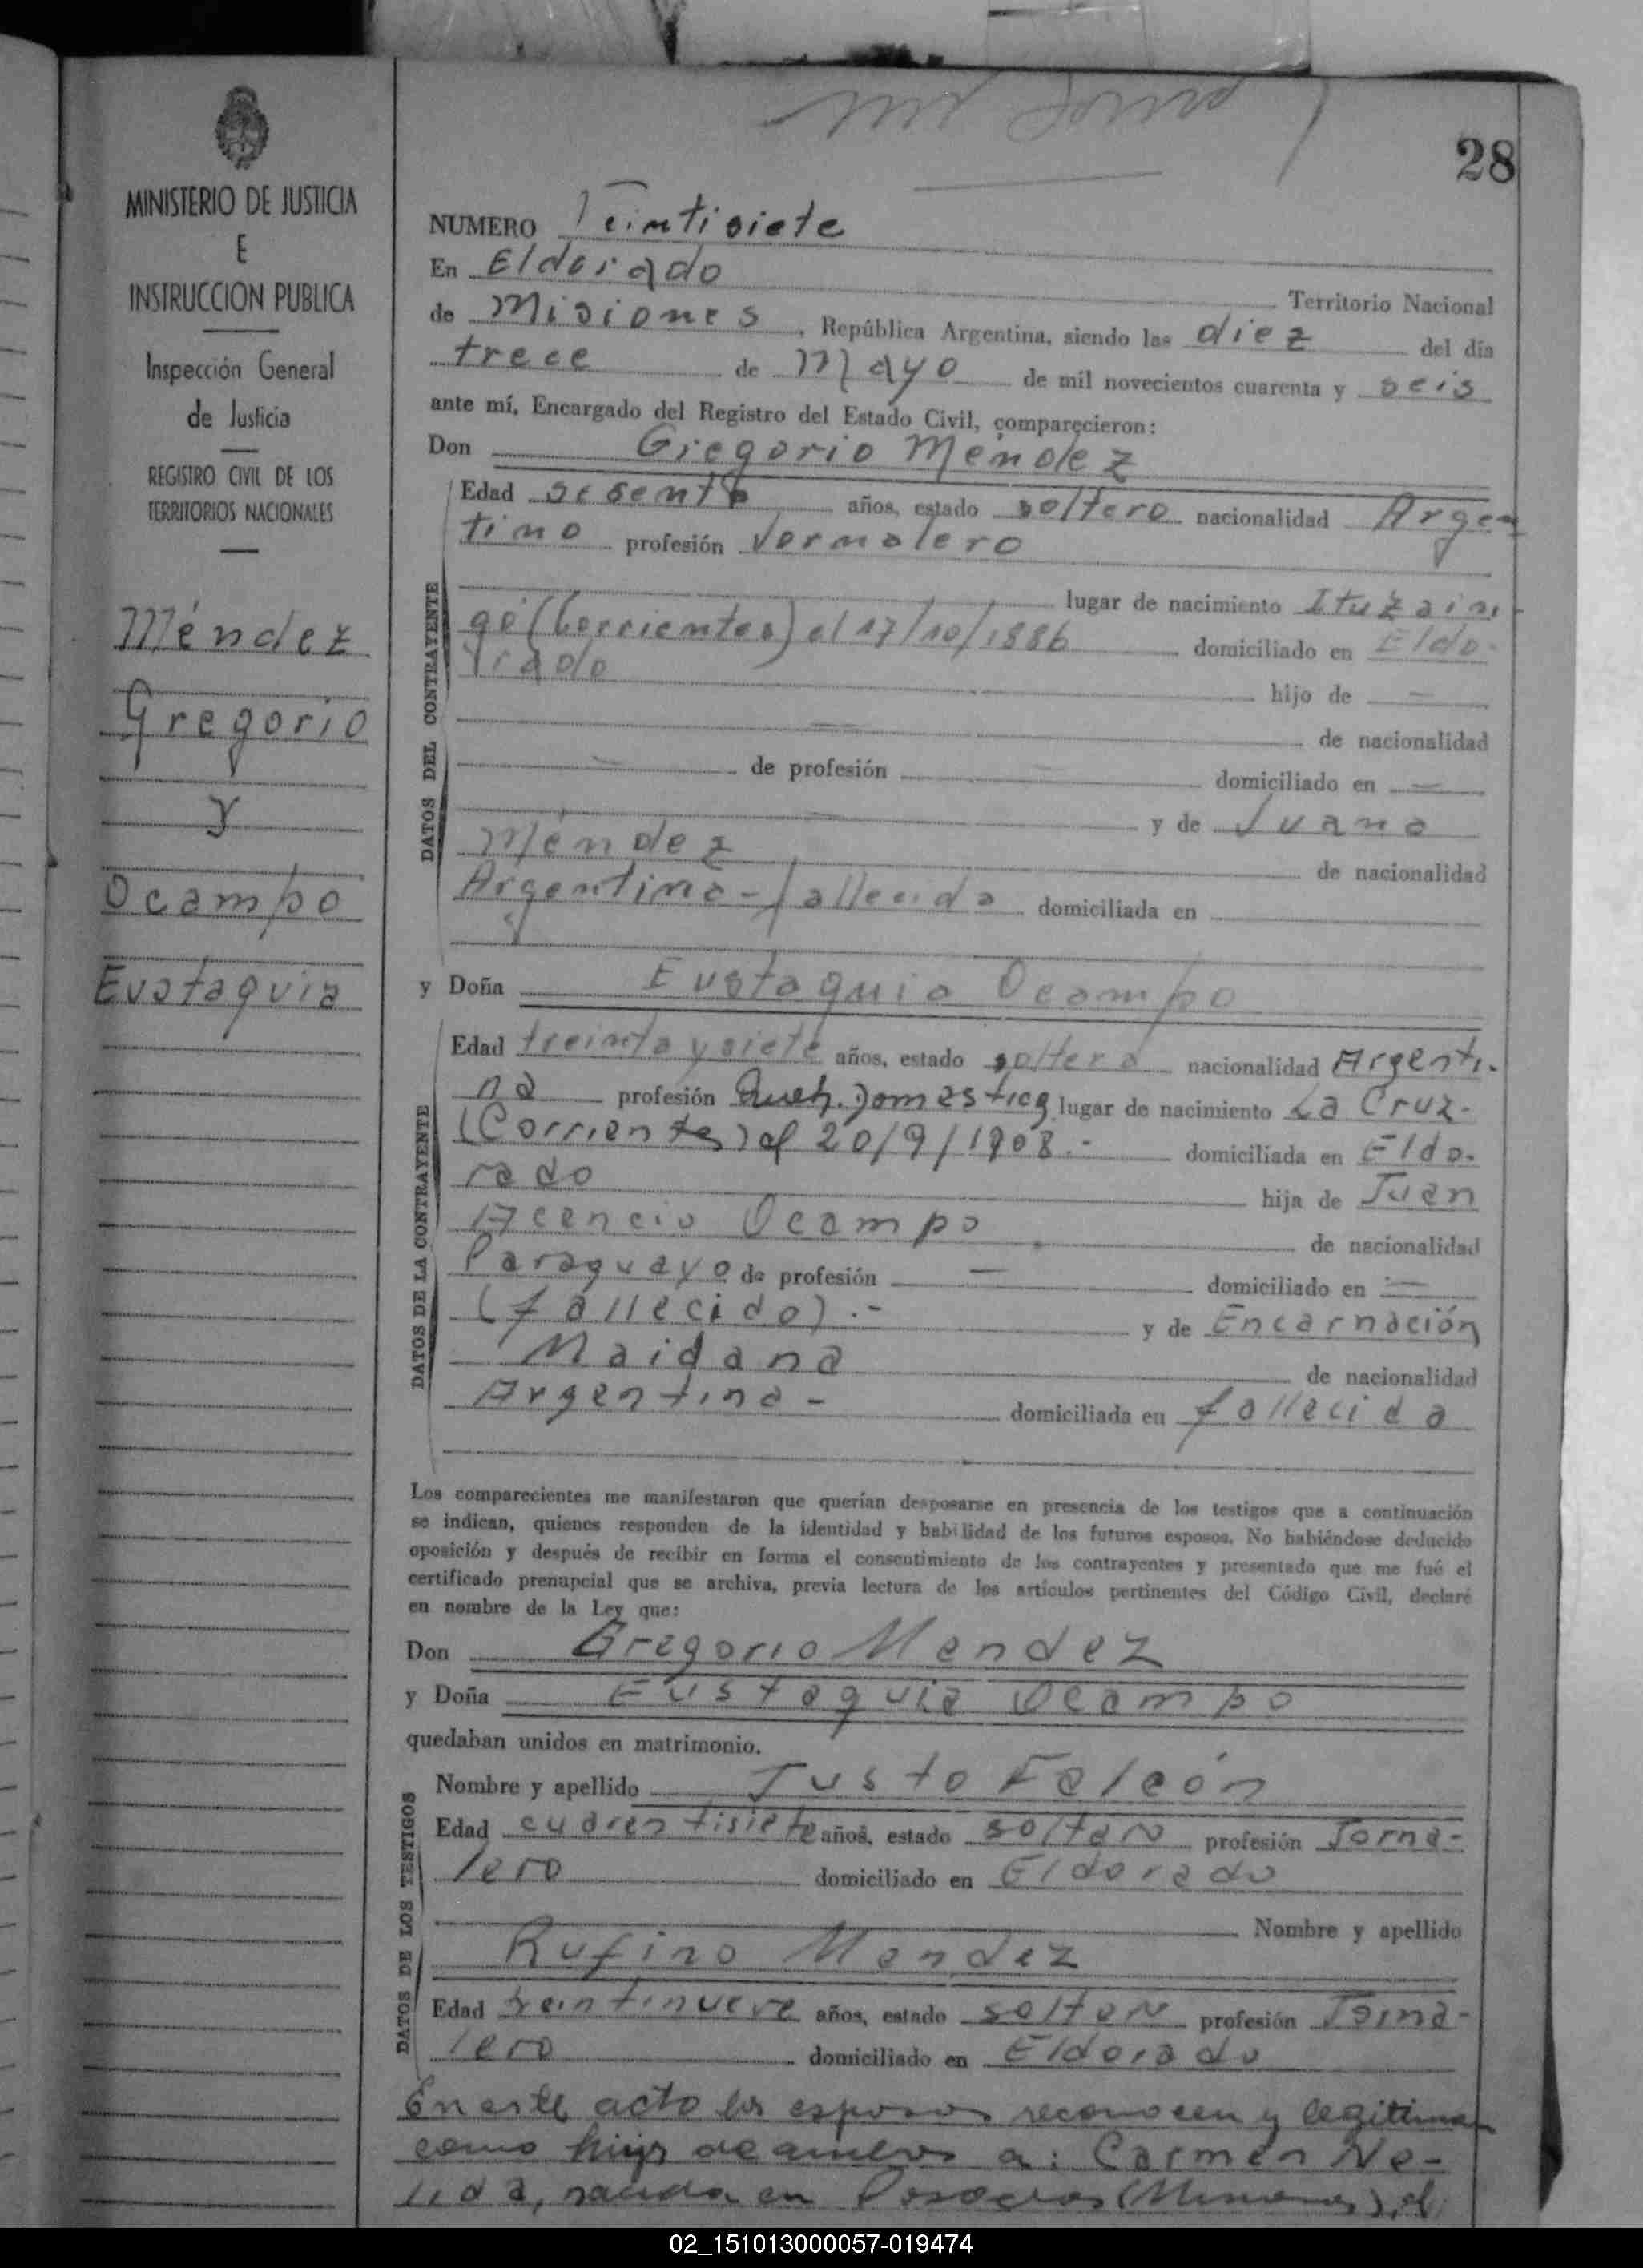 28
MINISTERIO DE JUSTICIA
E
INSTRUCCION PUBLICA
Inspección General
de Justicia
REGISTRO CIVIL DE LOS
TERRITORIOS NACIONALES
Méndez
Gregorio
y
Ocampo
Eustaquia
NUMERO Veintisiete
En Eldorado
Territorio Nacional
de Misiones, República Argentina, siendo las diez del día
trece de Mayo de mil novecientos cuarenta y seis
ante mí, Encargado del Registro del Estado Civil, comparecieron:
Don Gregorio Méndez
DATOS DEL CONTRAYENTE
Edad sesenta años, estado soltero nacionalidad Argen
tino profesión Jornalero
lugar de nacimiento Ituzain-
gó (Corrientes) el 17/10/1886 domiciliado en Eldo-
rado
hijo de —
— de nacionalidad
— de profesión — domiciliado en —
y de Juana
Méndez de nacionalidad
Argentina - fallecida domiciliada en
y Doña Eustaquia Ocampo
DATOS DE LA CONTRAYENTE
Edad treinta y siete años, estado soltera nacionalidad Argenti-
na profesión Queh. Domestica lugar de nacimiento La Cruz-
(Corrientes) el 20/9/1908.- domiciliada en Eldo-
rado
hija de Juan
Acencio Ocampo de nacionalidad
Paraguayo de profesión — domiciliado en —
(fallecido).- y de Encarnación
Maidana de nacionalidad
Argentina - domiciliada en fallecida
Los comparecientes me manifestaron que querían desposarse en presencia de los testigos que a continuación
se indican, quienes responden de la identidad y habilidad de los futuros esposos. No habiéndose deducido
oposición y después de recibir en forma el consentimiento de los contrayentes y presentado que me fué el
certificado prenupcial que se archiva, previa lectura de los artículos pertinentes del Código Civil, declaré
en nombre de la Ley que:
Don Gregorio Mendez
y Doña Eustaquia Ocampo
quedaban unidos en matrimonio.
DATOS DE LOS TESTIGOS
Nombre y apellido Justo Falcón
Edad cuarentisiete años, estado soltero profesión Jorna-
lero domiciliado en Eldorado
Nombre y apellido
Rufino Mendez
Edad treintinueve años, estado soltero profesión Jorna-
lero domiciliado en Eldorado
En este acto los esposos reconocen y legitiman
como hijos de ambos a: Carmen Ne-
lida, nacida en Posadas (Misiones), el
02_151013000057-019474